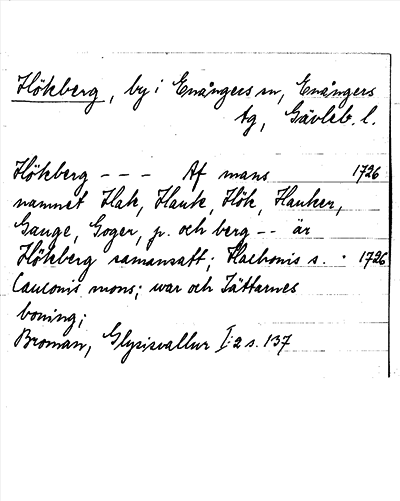 Hökberg, by i Enångers sn, Enångers
tg, Gävleb. l.
Hökberg --- Af mans 1726
namnet Hak, Hauk, Hök, Hauker,
Gauge, Goger, p. och berg -- är
Hökberg samansatt; Hachonis s. 1726
Cauconis mons; war och Jättarnes
boning;
Broman, Glysisvallur I:2 s. 137